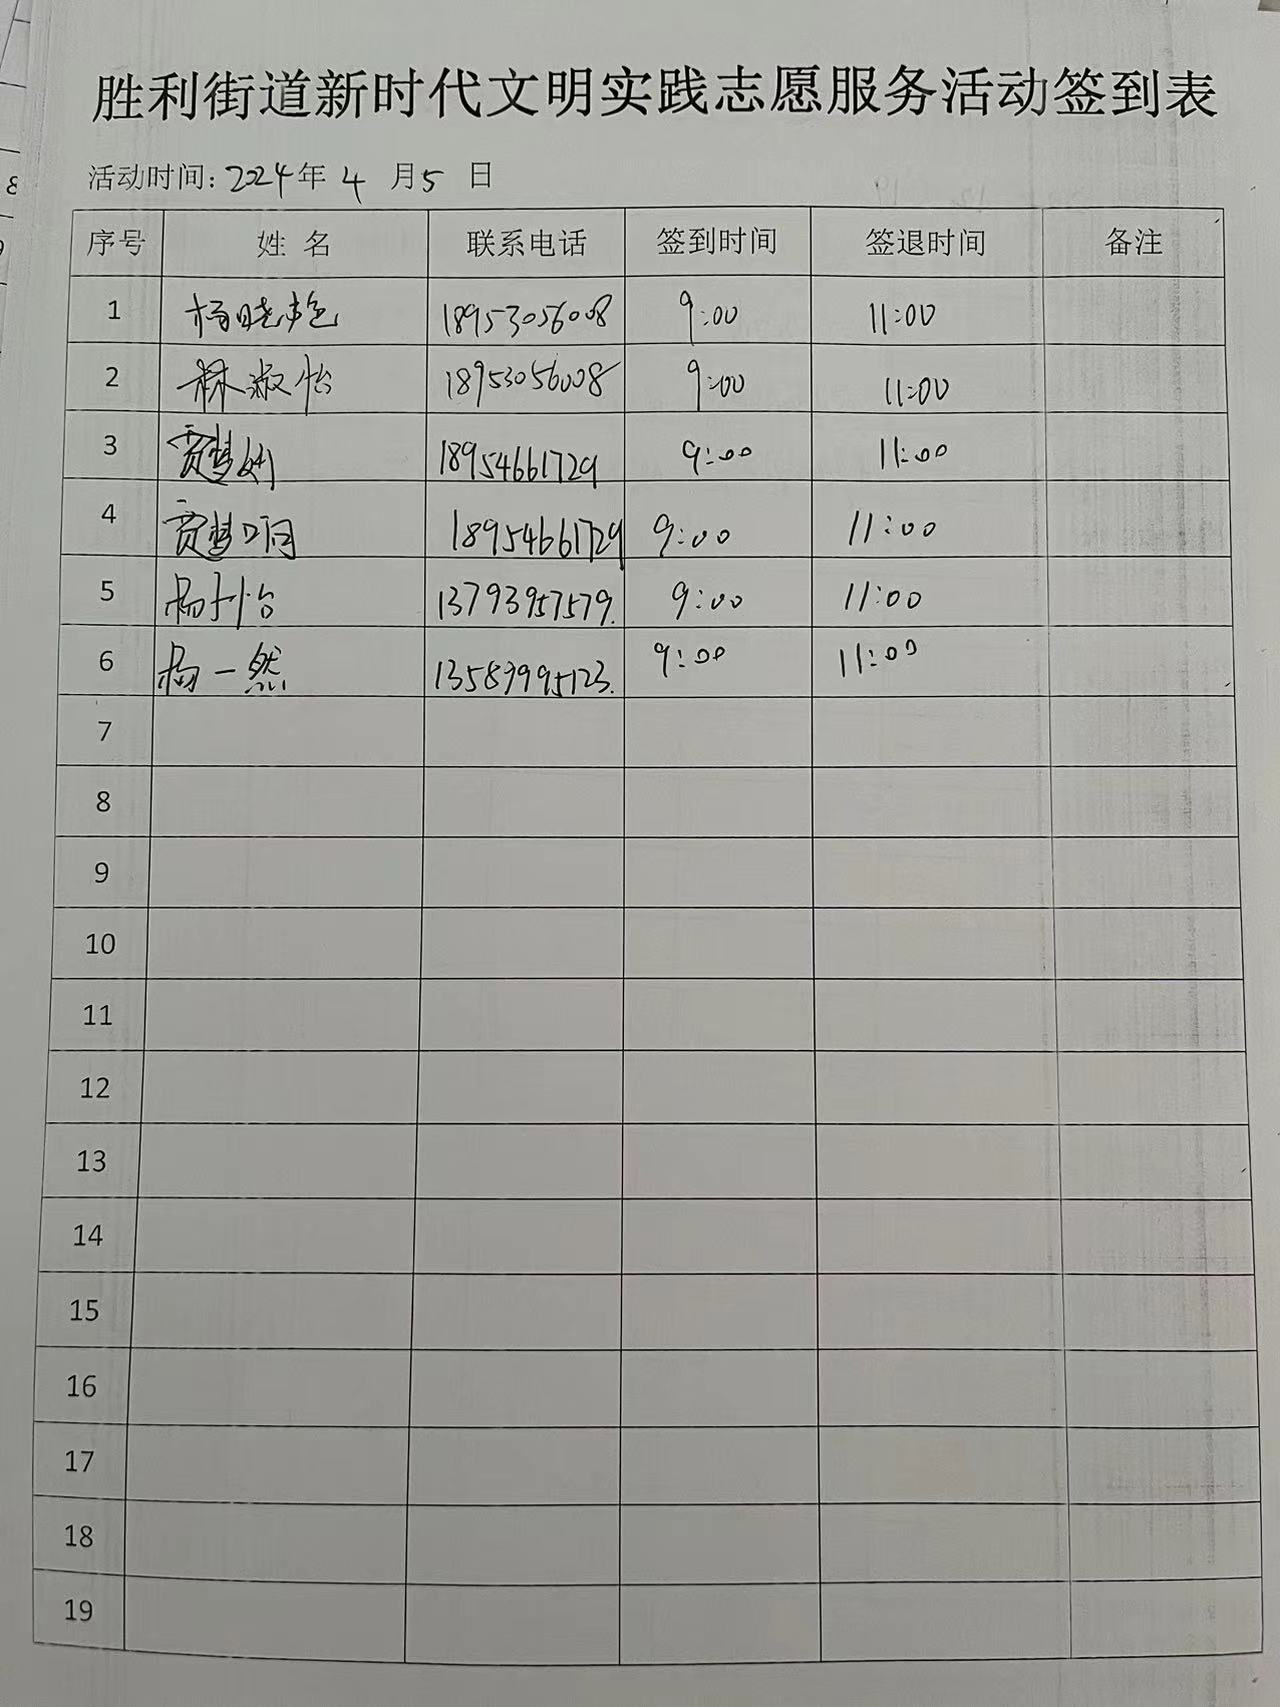 胜利街道新时代文明实践志愿服务活动签到表
活动时间: 2024年 4 月 5 日
序号 姓 名 联系电话 签到时间 签退时间 备注
1 杨晓艳 18953056008 9:00 11:00
2 林淑怡 18953056008 9:00 11:00
3 贾梦 18954661729 9:00 11:00
4 贾梦 18954661729 9:00 11:00
5 杨子怡 13793957579. 9:00 11:00
6 杨一然 13583995123. 9:00 11:00
7
8
9
10
11
12
13
14
15
16
17
18
19